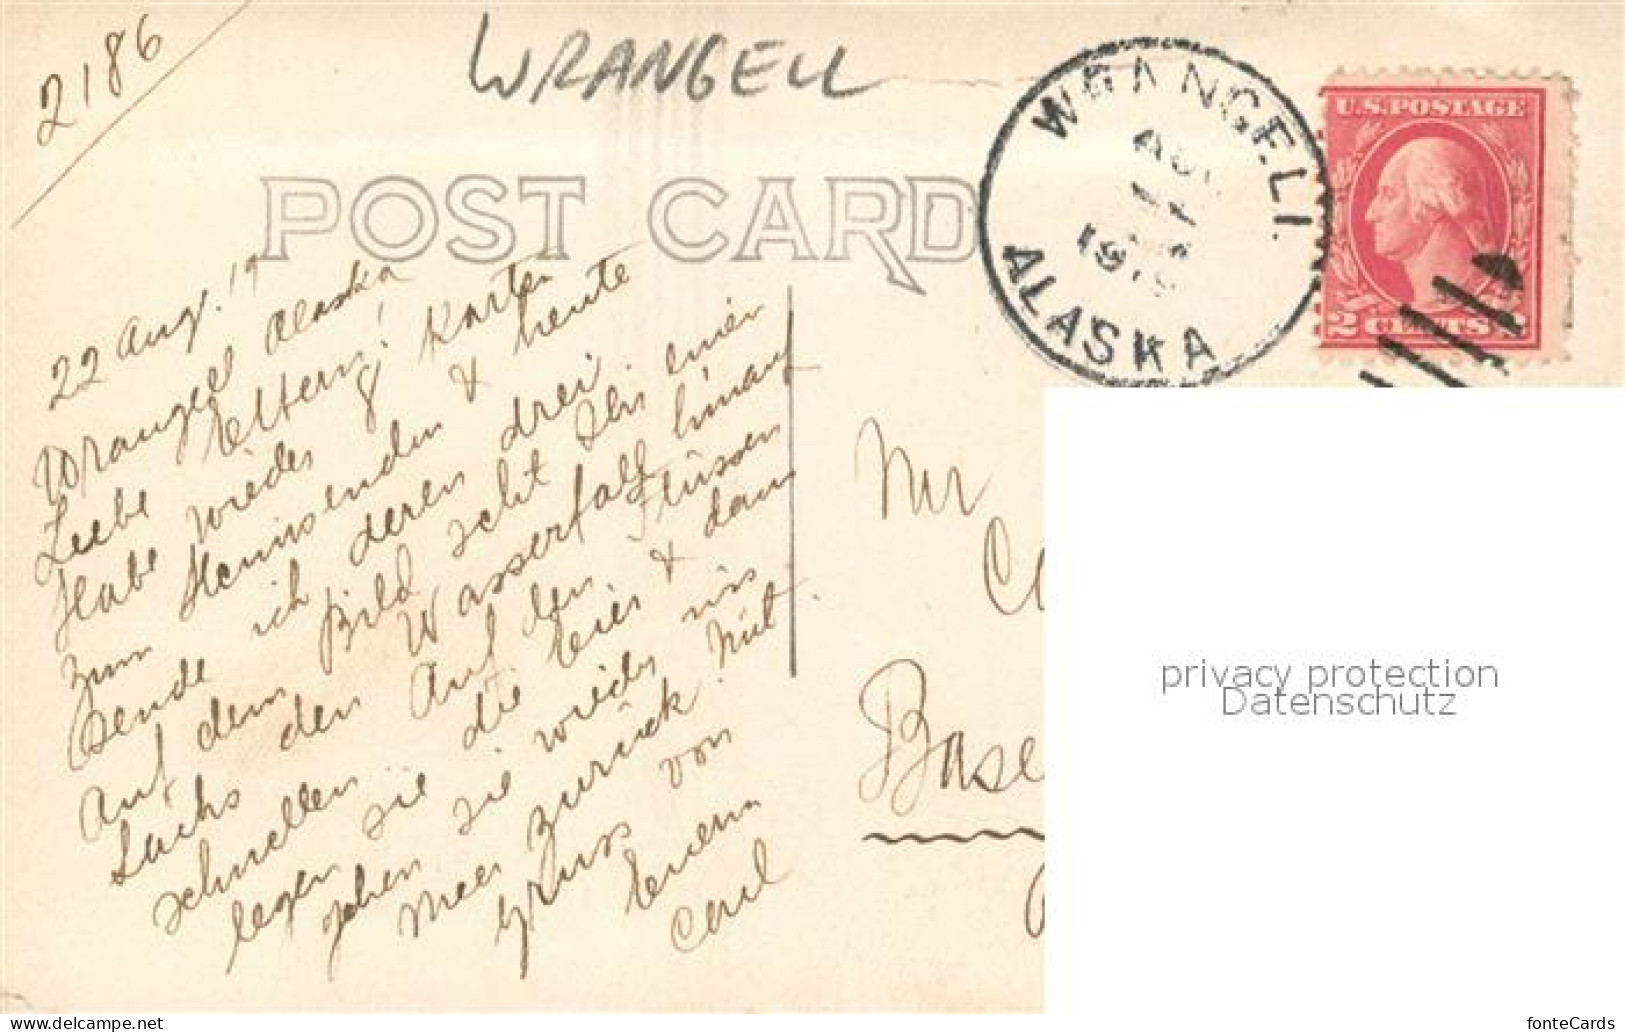 2186
WRANGELL
POST CARD
WRANGELL
ALASKA
U.S. POSTAGE
2 CENTS 2
22 Aug. 19
Wrangel Alaska
Liebe Eltern!
Habe wieder 8 Karten
zum Heimsenden & heute
sende ich deren drei.
Auf dem Bild seht Ihr einen
Lachs den Wasserfall hinauf
schnellen. Auf den Flüssen
legen sie die Eier & dann
gehen sie wieder ins
Meer zurück. Mit
Gruss von
Eurem
Carl
Mr
Base
privacy protection
Datenschutz
delcampe.net
fonteCards